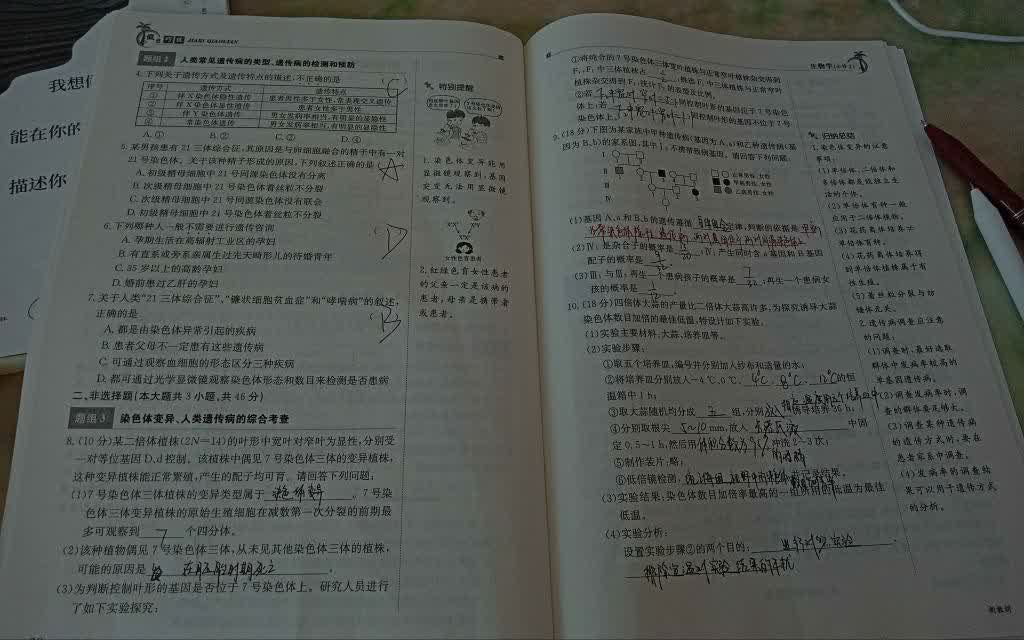 我想
能在你的
描述你
题组2 人类常见遗传病的类型、遗传病的检测和预防
4.下列关于遗传方式及遗传特点的描述,不正确的是
序号 遗传方式 遗传特点
① 伴X染色体隐性遗传 患者男性多于女性,常表现交叉遗传
② 伴X染色体显性遗传 患者女性多于男性
③ 伴Y染色体遗传 男女发病率相当,有明显的显隐性
④ 常染色体遗传 男女发病率相当,有明显的显隐性
A.① B.② C.③ D.④
5.某男孩患有21三体综合征,其原因是与卵细胞融合的精子中有一对
21号染色体。关于该种精子形成的原因,下列叙述正确的是
A.初级精母细胞中21号同源染色体没有分离
B.次级精母细胞中21号染色体着丝粒不分裂
C.次级精母细胞中21号同源染色体没有联会
D.初级精母细胞中21号染色体着丝粒不分裂
6.下列哪种人一般不需要进行遗传咨询
A.孕期生活在高辐射工业区的孕妇
B.有直系或旁系亲属生过先天畸形儿的待婚青年
C.35岁以上的高龄孕妇
D.婚前患过乙肝的孕妇
7.关于人类“21三体综合征”、“镰状细胞贫血症”和“哮喘病”的叙述,
正确的是
A.都是由染色体异常引起的疾病
B.患者父母不一定患有这些遗传病
C.可通过观察血细胞的形态区分三种疾病
D.都可通过光学显微镜观察染色体形态和数目来检测是否患病
二、非选择题(本大题共3小题,共46分)
题组3 染色体变异、人类遗传病的综合考查
8.(10分)某二倍体植株(2N=14)的叶形中宽叶对窄叶为显性,分别受
一对等位基因D、d控制。该植株中偶见7号染色体三体的变异植株,
这种变异植株能正常繁殖,产生的配子均可育。请回答下列问题:
(1)7号染色体三体植株的变异类型属于 。7号染
色体三体变异植株的原始生殖细胞在减数第一次分裂的前期最
多可观察到 7 个四分体。
(2)该种植物偶见7号染色体三体,从未见其他染色体三体的植株,
可能的原因是 在胚胎时期死亡 。
(3)为判断控制叶形的基因是否位于7号染色体上。研究人员进行
了如下实验探究:
特别提醒
1.染色体变异能用
显微镜观察到,基因
突变无法用显微镜
观察到。
女性色盲患者
2.红绿色盲女性患者
的父亲一定是该病的
患者,母亲是携带者
或患者。
生物学(必修2)
①将纯合的7号染色体三体宽叶植株与正常窄叶植株杂交得到
F₁,F₁中三体植株占 ;挑选F₁中三体植株与正常窄叶
植株杂交得到F₂,统计F₂的表型及比例。
②若 ,则控制叶形的基因位于7号染色
体上;若 ,则控制叶形的基因不位于7号
染色体上。
9.(18分)下图为某家族中甲种遗传病(基因为A、a)和乙种遗传病(基
因为B、b)的家系图,其中Ⅰ₁不携带致病基因。请回答下列问题:
正常男性、女性
甲病男性、女性
乙病男性、女性
(1)基因A、a和B、b的遗传遵循 自由组合 定律,判断的依据是
(2)Ⅳ₁是杂合子的概率是 ;Ⅳ₁产生同时含a基因和B基因
配子的概率是 。
(3)Ⅲ₁与Ⅲ₂再生一个患病孩子的概率是 ;再生一个患病女
孩的概率是 。
10.(18分)四倍体大蒜的产量比二倍体大蒜高许多,为探究诱导大蒜
染色体数目加倍的最佳低温,特设计如下实验。
(1)实验主要材料:大蒜、培养皿等。
(2)实验步骤:
①取五个培养皿,编号并分别加入纱布和适量的水;
②将培养皿分别放入-4℃、0℃、 4℃、8℃、12℃ 的恒
温箱中1h;
③取大蒜随机均分成 五 组,分别 诱导培养36h;
④分别取根尖 5~10mm,放入 卡诺氏液 中固
定0.5~1h,然后用 冲洗2~3次;
⑤制作装片:略;
⑥低倍镜检测, 并记录结果。
(3)实验结果:染色体数目加倍率最高的一组所用的低温为最佳
低温。
(4)实验分析:
设置实验步骤②的两个目的: 进行对照实验 、
排除室温对实验结果的干扰
归纳总结
1.染色体变异的注意
事项:
(1)单倍体、二倍体和
多倍体都是能独立生
活的个体。
(2)单倍体育种一般
应用于二倍体植物。
(3)花药离体培养≠
单倍体育种。
(4)花药离体培养得
到单倍体植株属于有
性生殖。
(5)着丝粒分裂与纺
锤体无关。
2.遗传病调查应注意
的问题:
(1)调查时,最好选取
群体中发病率较高的
单基因遗传病。
(2)调查发病率时,调
查的群体要足够大。
(3)调查某种遗传病
的遗传方式时,要在
患者家系中调查。
(4)发病率的调查结
果可以用于遗传方式
的分析。
新教材